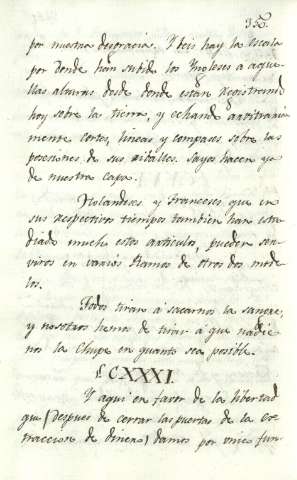 35.
por nuestra desgracia. Y veis hay la escala
por donde han subido los Ingleses a aque-
llas alturas desde donde estan registrando
hoy sobre la tierra, y echando arbitraria
mente cortes, lineas y compases sobre las
posesiones de sus rivales. Sayos hacen ya
de nuestra capa.
Holandeses y Franceses que en
sus respectivos tiempos tambien han estu
diado mucho estos articulos, pueden ser-
viros en varios Ramos de otros dos mode
los.
Todos tiran á sacarnos la sangre,
y nosotros hemos de tirar á que nadie
nos la chupe en quanto sea posible.
CXXXI.
Y aqui en favor de la libertad
que (despues de cerrar las puertas de la ex
traccion de dinero) damos por unico fun-